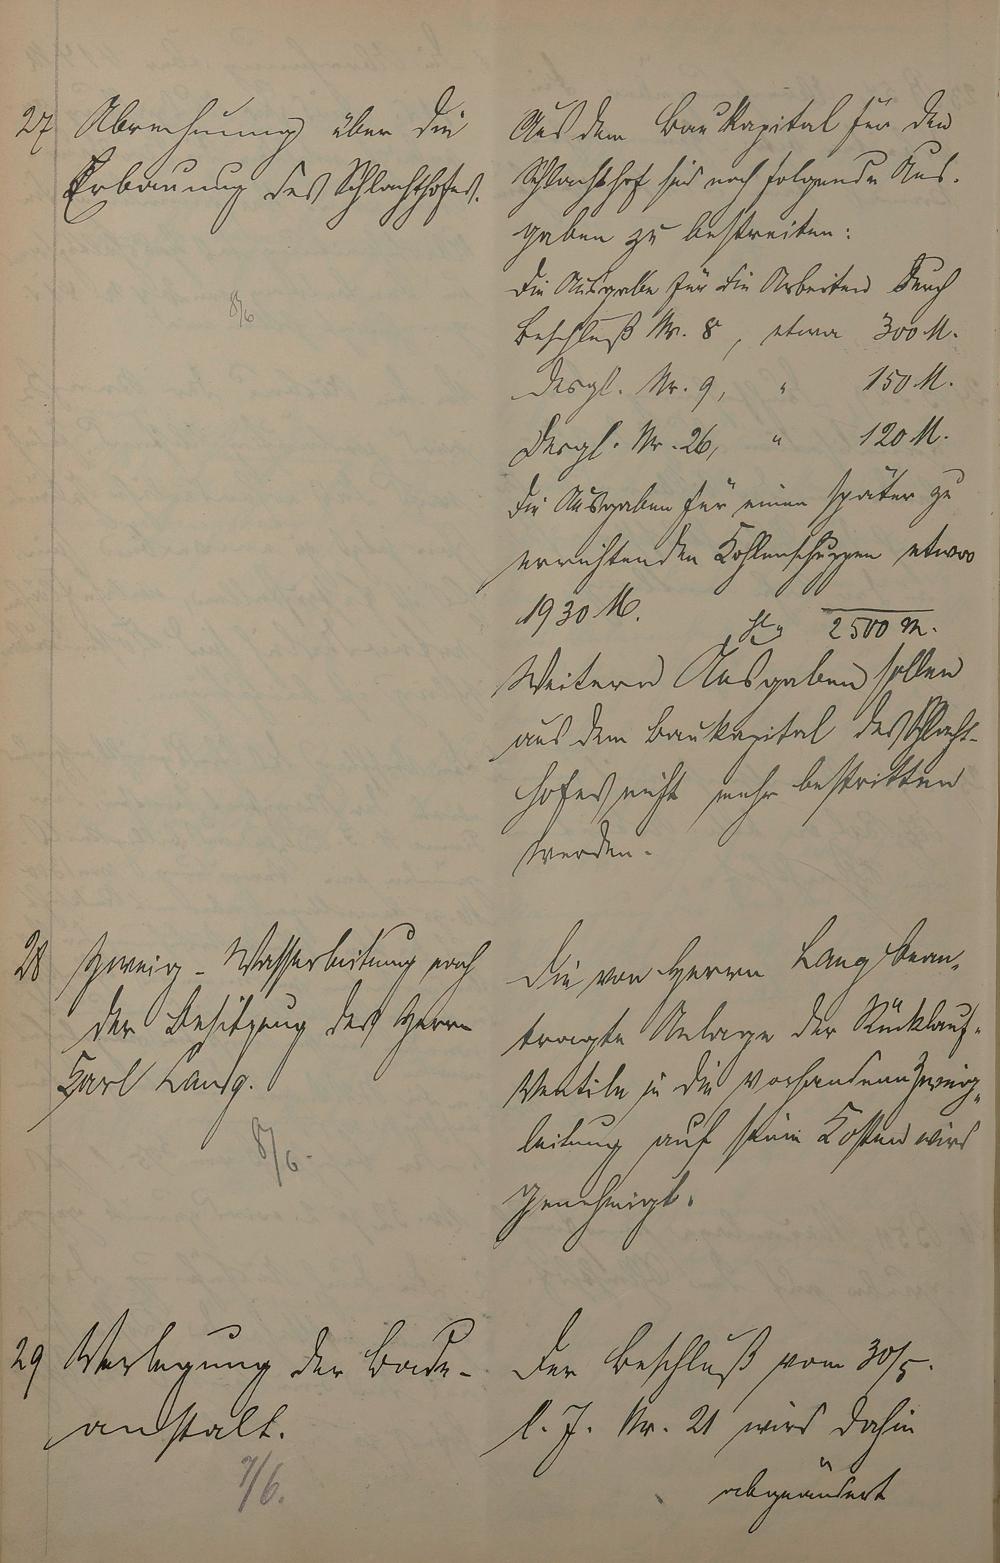 27 Abrechnung über die
Erbauung des Schlachthofes.
8/6
Aus dem Baukapital für den
Schlachthof sind noch folgende Aus-
gaben zu bestreiten:
Die Ausgabe für die Arbeiten durch
Beschluß Nr. 8, etwa 300 M.
desgl. Nr. 9, " 150 M.
desgl. Nr. 26, " 120 M.
Die Ausgaben für einen später zu
errichtenden Kohlenschuppen etwa
1930 M.
2500 M.
Weitere Ausgaben sollen
aus dem Baukapital des Schlacht-
hofes nicht mehr bestritten
werden.
28 Zweig-Wasserleitung nach
der Besitzung des Herrn
Karl Lang.
8/6.
Die von Herrn Lang bean-
tragte Anlage der Rücklauf-
Ventile in die vorhandene Zweig-
leitung auf seine Kosten wird
genehmigt.
29 Verlegung der Bade-
anstalt.
7/6.
Der Beschluß vom 30/5.
l. J. Nr. 21 wird dahin
abgeändert